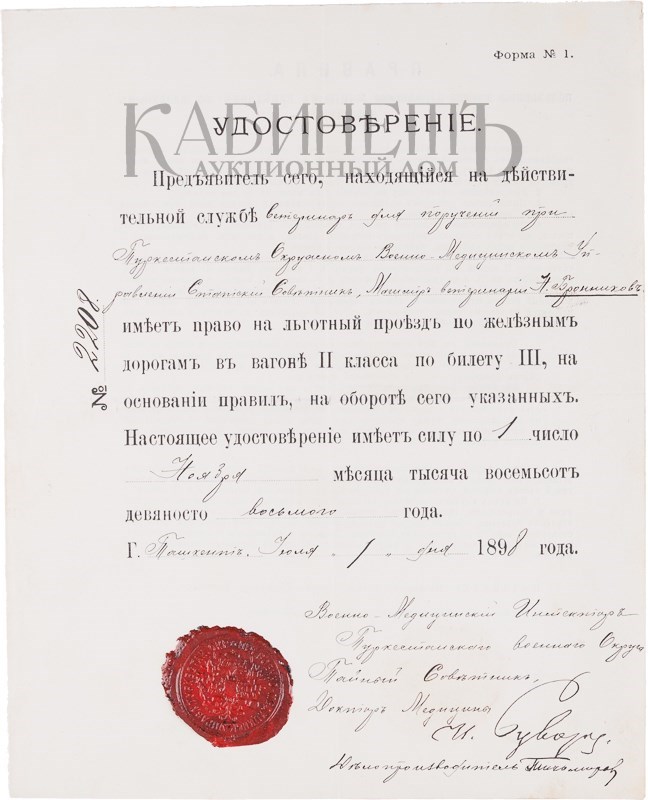 Форма № 1.
КАБИНЕТЪ
АУКЦИОННЫЙ ДОМ
УДОСТОВѢРЕНІЕ.
Предъявитель сего, находящійся на дѣйстви-
тельной службѣ ветеринаръ для порученій при
Туркестанскомъ Окружномъ Военно-Медицинскомъ Уп-
равленіи Статскій Совѣтникъ, Магистръ ветеринаріи Н. Бронниковъ
имѣетъ право на льготный проѣздъ по желѣзнымъ
дорогамъ въ вагонѣ II класса по билету III, на
основаніи правилъ, на оборотѣ сего указанныхъ.
Настоящее удостовѣреніе имѣетъ силу по 1 число
Ноября мѣсяца тысяча восемьсотъ
девяносто восьмого года.
Г. Ташкентъ. Іюля „ 1 „ дня 1898 года.
№ 2208.
Военно-Медицинскій Инспекторъ
Туркестанскаго военнаго Округа
Тайный Совѣтникъ,
Докторъ Медицины
И. Суворов.
Дѣлопроизводитель